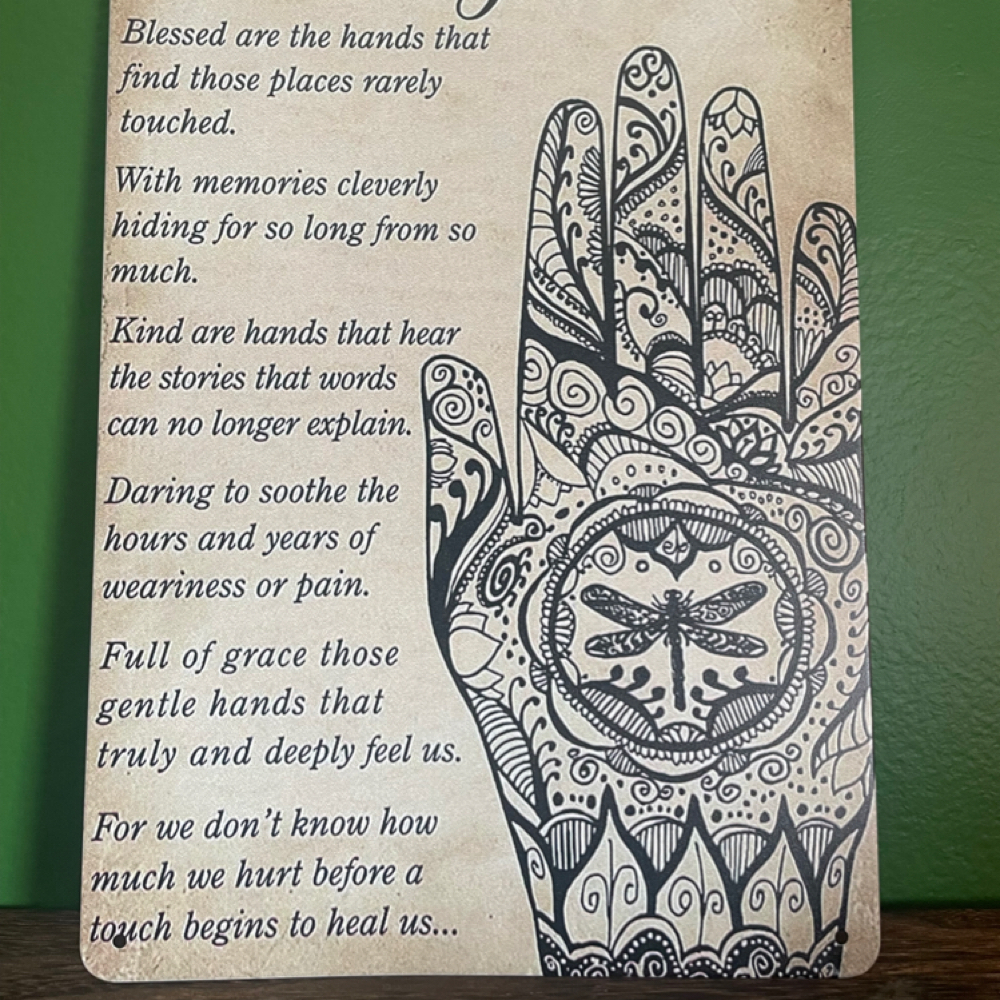 Blessed are the hands that
find those places rarely
touched.
With memories cleverly
hiding for so long from so
much.
Kind are hands that hear
the stories that words
can no longer explain.
Daring to soothe the
hours and years of
weariness or pain.
Full of grace those
gentle hands that
truly and deeply feel us.
For we don't know how
much we hurt before a
touch begins to heal us...